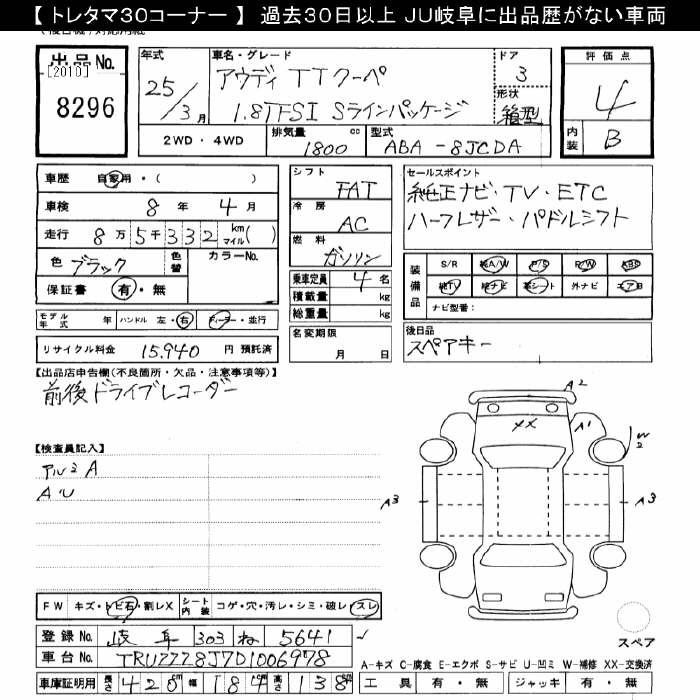 【 トレタマ30コーナー 】 過去30日以上 JU岐阜に出品歴がない車両
出品 No.
[2010]
8296
年式
25/3月
車名・グレード
アウディ TTクーペ
1.8TFSI Sラインパッケージ
ドア
3
形状
箱型
評価点
4
内装 B
2WD・4WD
排気量 1800 cc
型式 ABA-8JCDA
車歴 自家用・( )
車検 8年 4月
走行 8万5千332 km マイル( )
色 ブラック 色替 カラーNo.
保証書 有・無
シフト
FAT
冷房
AC
燃料
ガソリン
乗車定員 4名
積載量 kg
総重量 kg
セールスポイント
純正ナビ・TV・ETC
ハーフレザー・パドルシフト
装備品
S/R 純A/W P/S P/W ABS
純TV 純ナビ 革シート 外ナビ エアB
ナビ型番:
モデル年式 年 ハンドル 左・右 ディーラー・並行
リサイクル料金 15,940 円 預託済
名変期限
月 日
後日品
スペアキー
【出品店申告欄(不良箇所・欠品・注意事項等)】
前後ドライブレコーダー
【検査員記入】
アルミA
AU
A2
XX
A1
W2
A3
A3
スペア
FW キズ・トビ石・割レX シート内装 コゲ・穴・汚レ・シミ・破レ・スレ
登録 No. 岐阜 303 ね 5641
車台 No. TRUZZZ8J7D1006978
A-キズ C-腐食 E-エクボ S-サビ U-凹ミ W-補修 XX-交換済
車庫証明用 長さ 420cm 幅 184cm 高さ 138cm
工具 有・無 ジャッキ 有・無